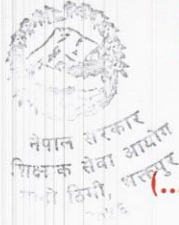 नेपाल सरकार
शिक्षक सेवा आयोग
ठिमी, भक्तपुर
(..